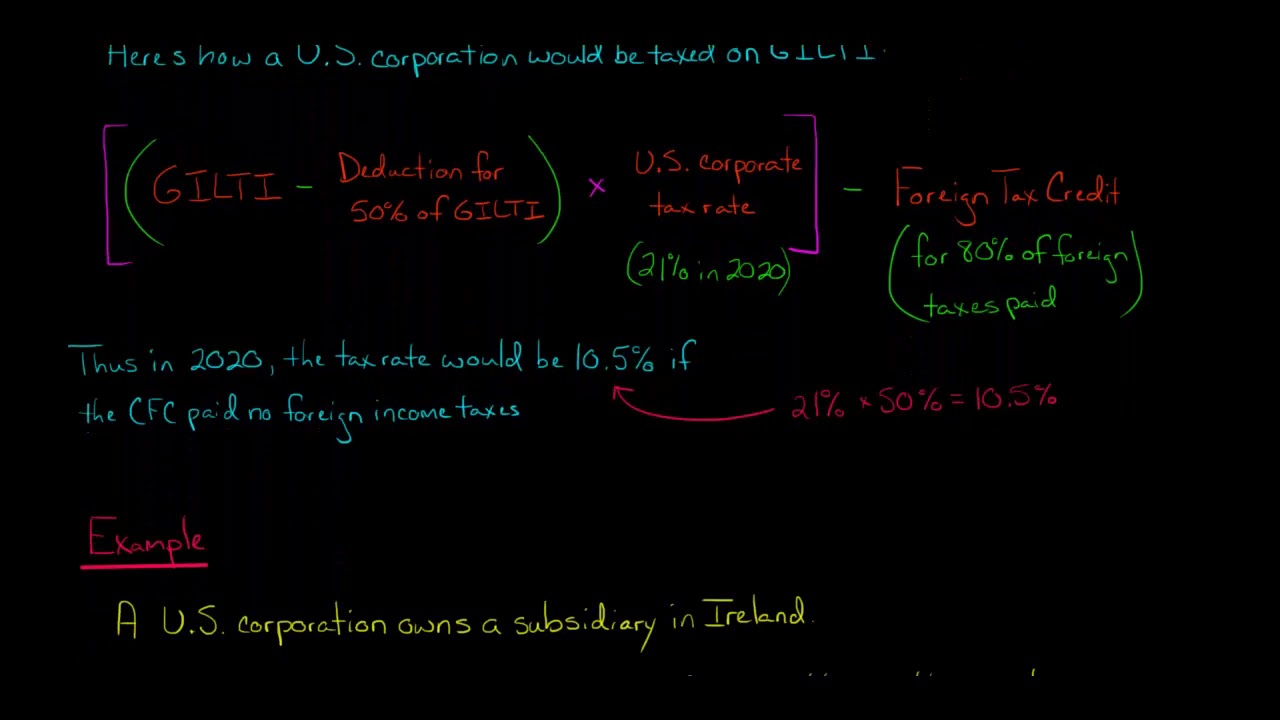 Here's how a U.S. corporation would be taxed on GILTI.
[(GILTI - Deduction for 50% of GILTI) × U.S. corporate tax rate] - Foreign Tax Credit
(21% in 2020)
(for 80% of foreign taxes paid)
Thus in 2020, the tax rate would be 10.5% if
the CFC paid no foreign income taxes
21% × 50% = 10.5%
Example
A U.S. corporation owns a subsidiary in Ireland.